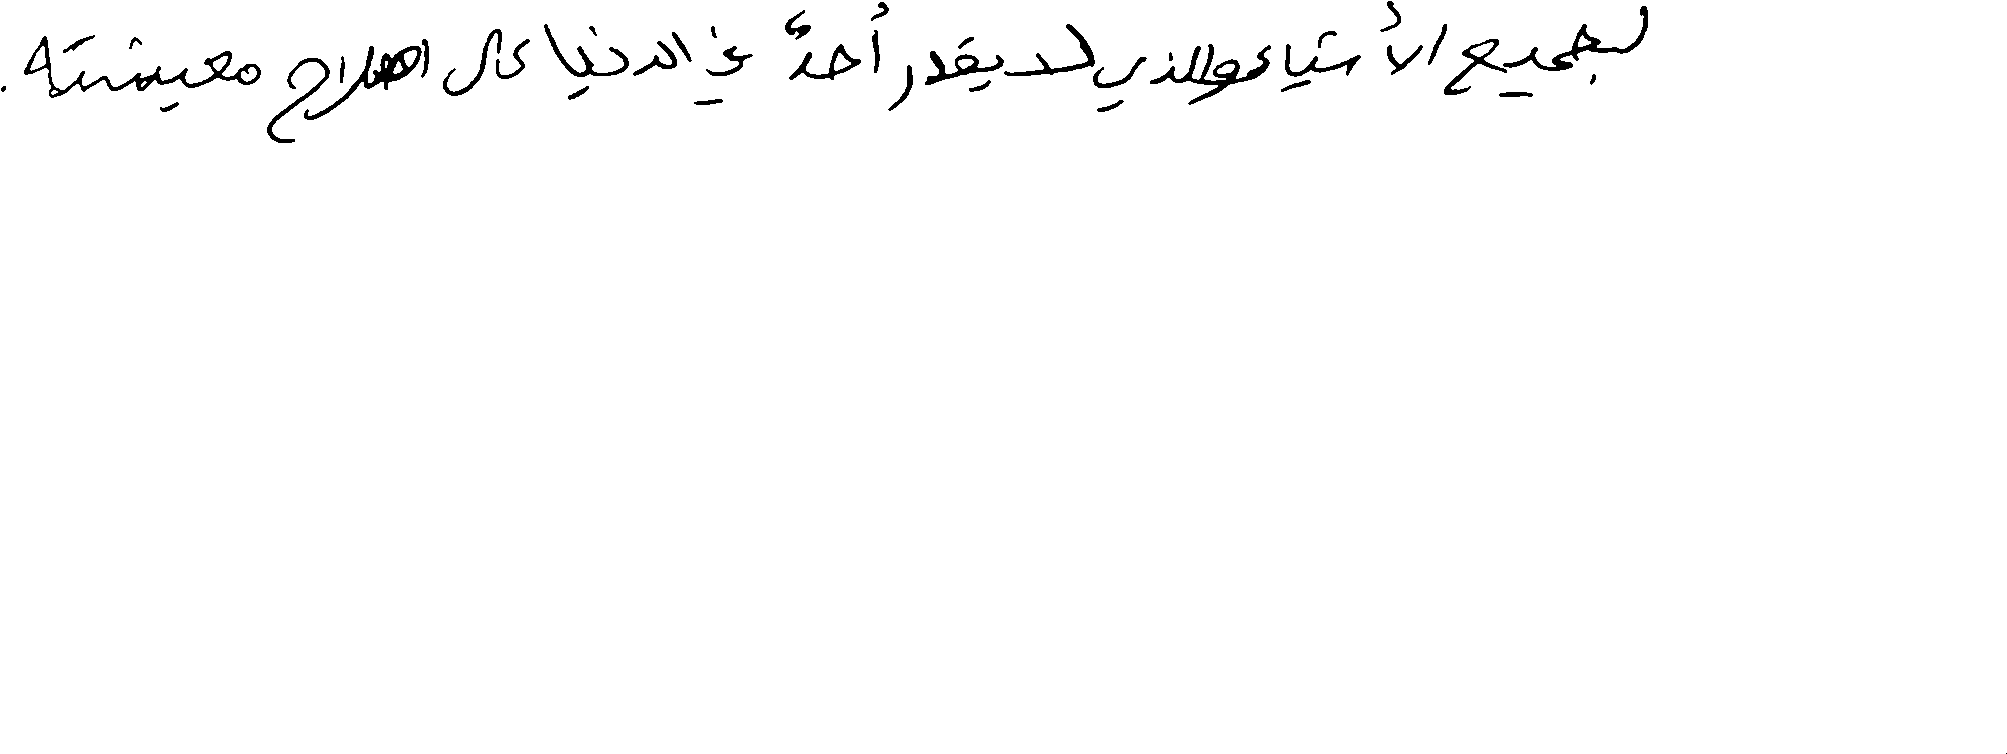 لجميع الأشياء والذي لا يقدر أحدٌ في الدنيا على اصلاح معيشته.